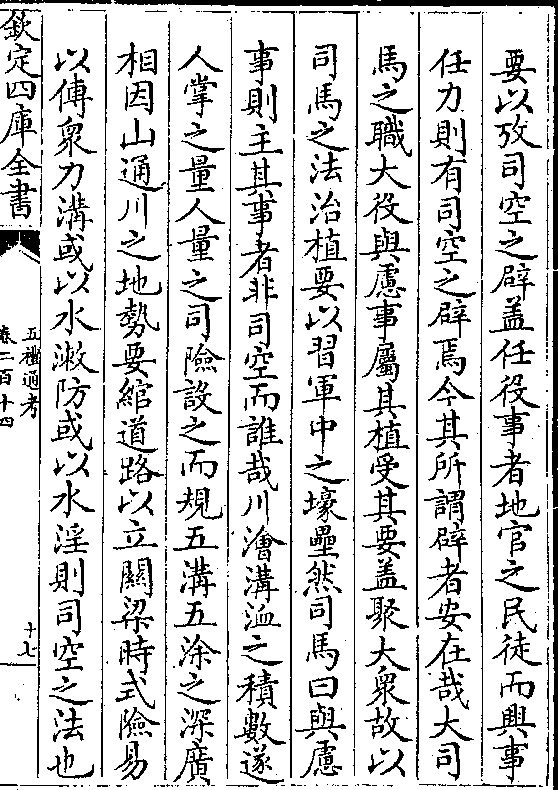 要以攷司空之辟盖任役事者地官之民徒而興事
任力則有司空之辟焉今其所謂辟者安在哉大司
馬之職大役與慮事屬其植受其要盖聚大衆故以
司馬之法治植要以習軍中之壕壘然司馬曰與慮
事則主其事者非司空而誰哉川澮溝洫之積數遂
人掌之量人量之司險設之而規五溝五涂之深廣
相因山通川之地勢要綰道路以立關梁時式險易
以傅衆力溝或以水漱防或以水淫則司空之法也
欽定四庫全書
五禮通考
卷二百十四
十七